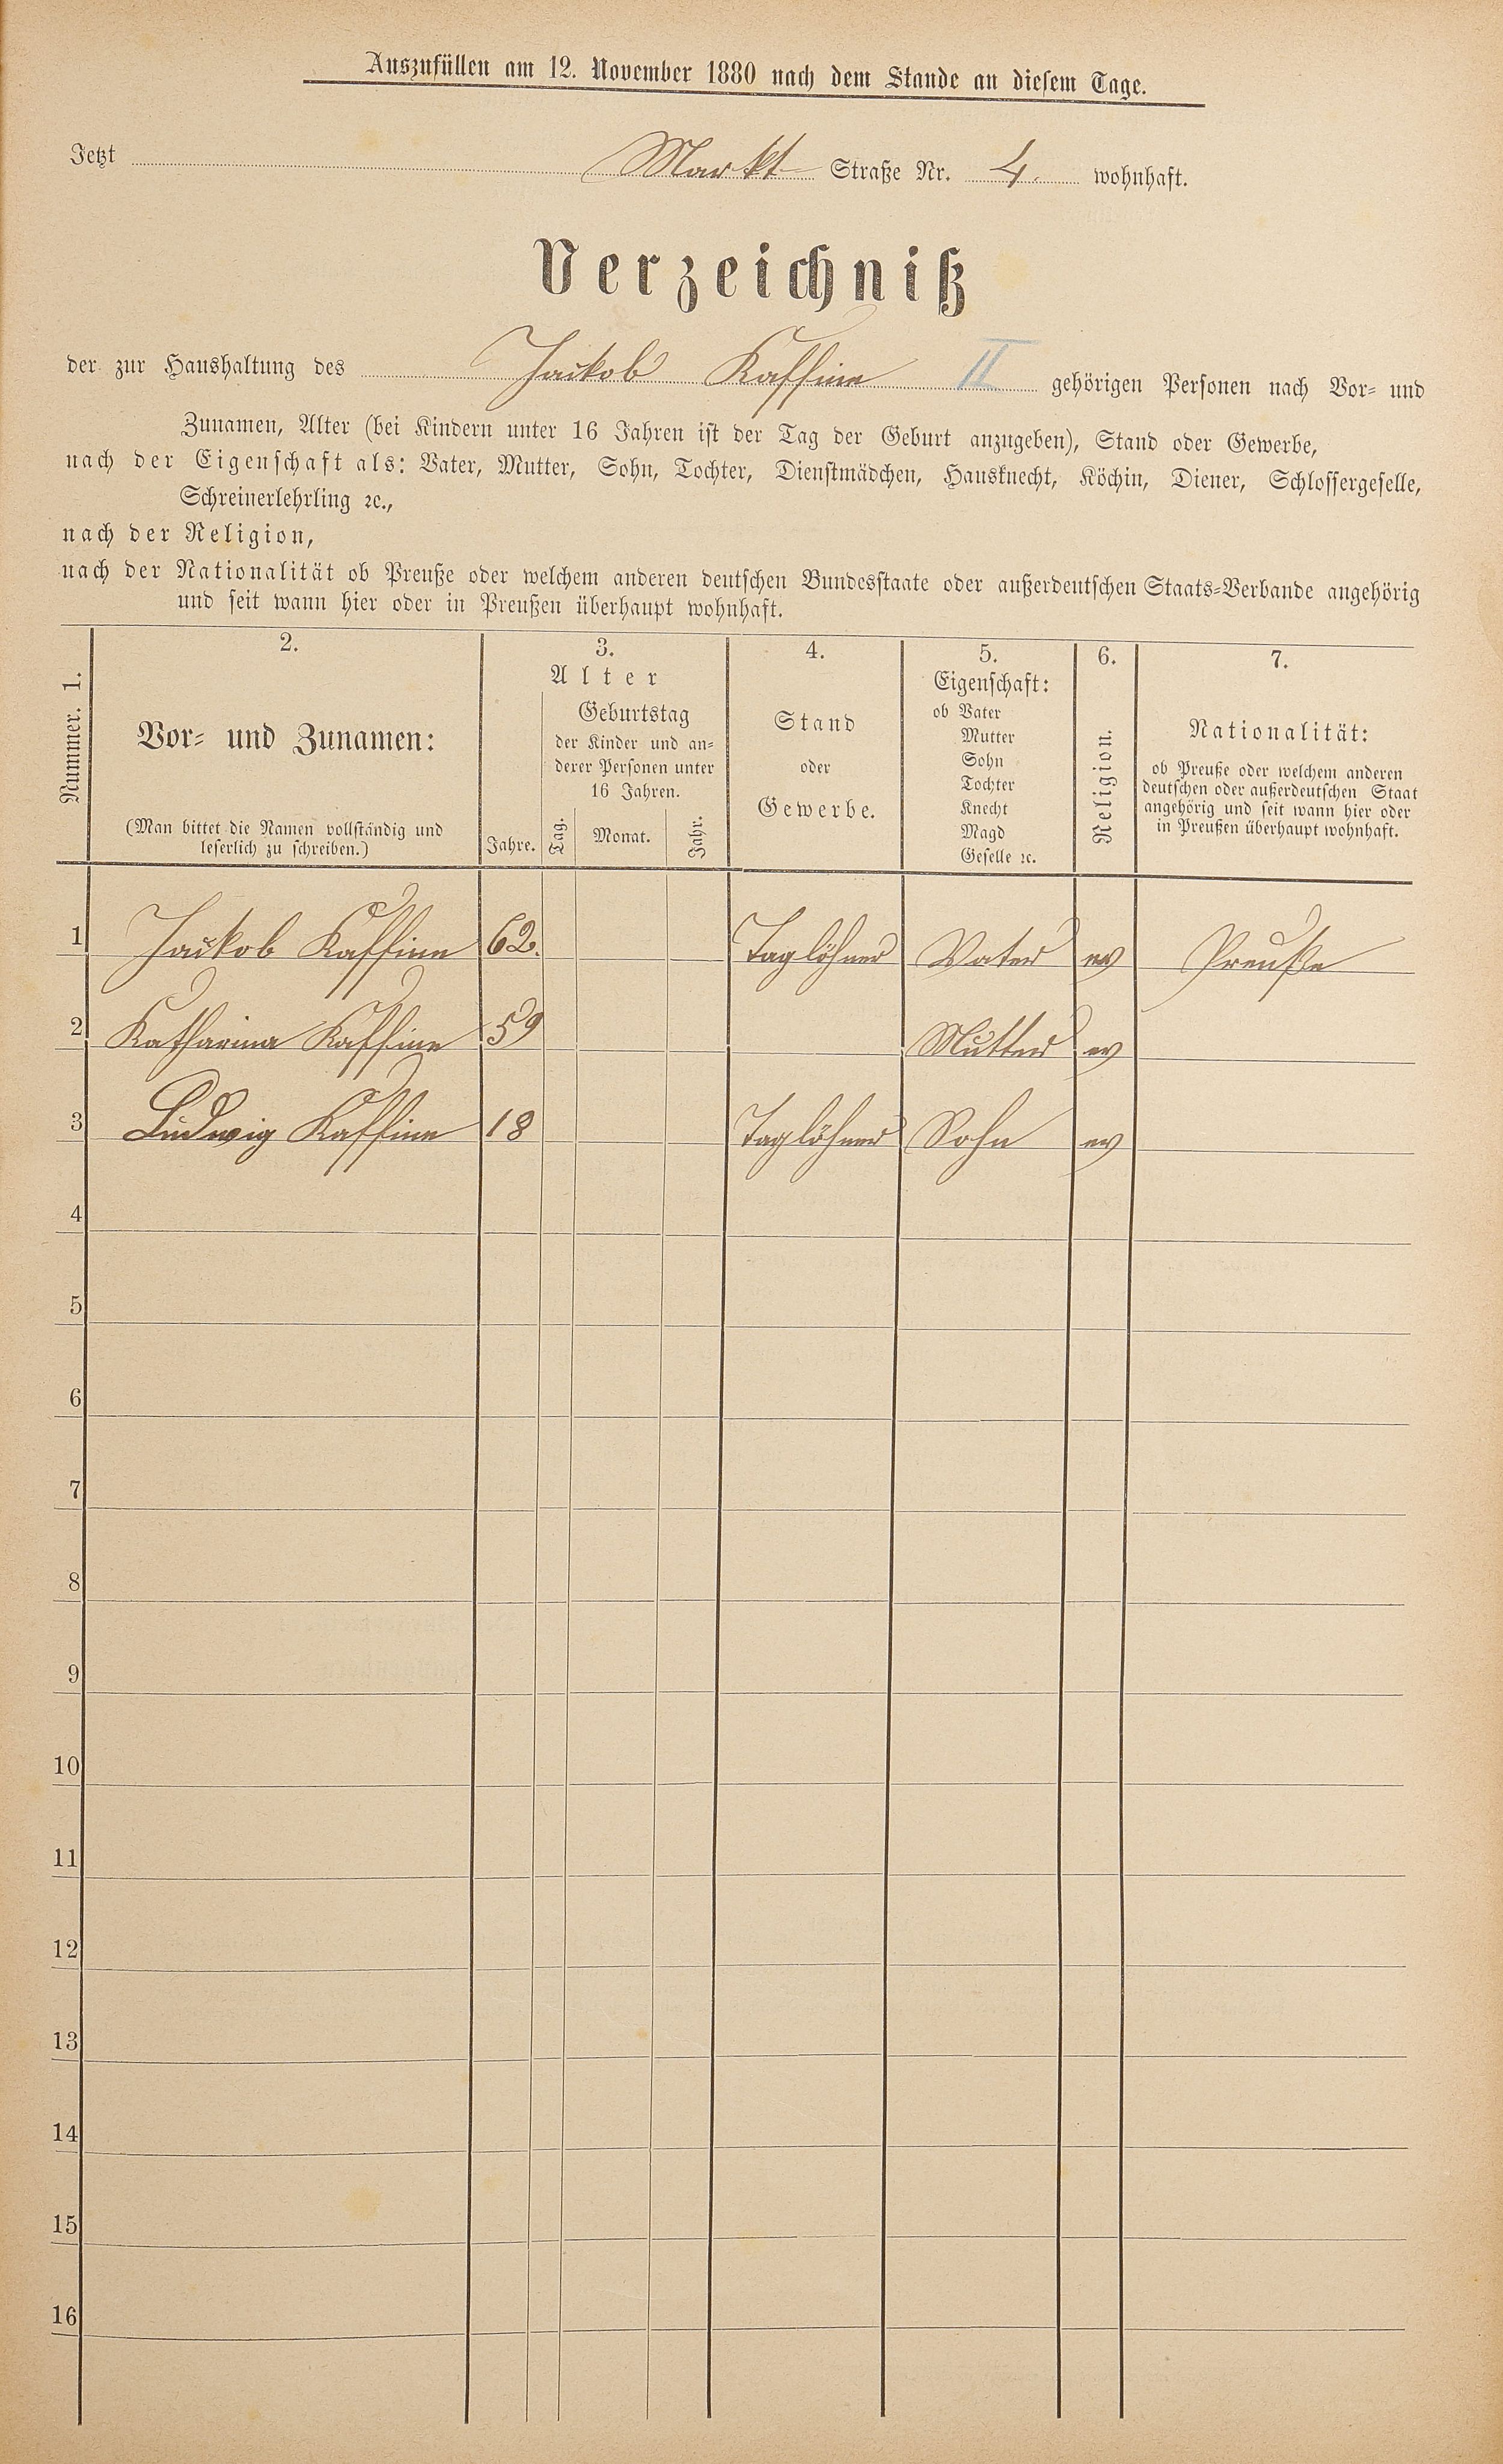 Auszufüllen am 12. November 1880 nach dem Stande an diesem Tage.
Jetzt Markt Straße Nr. 4. wohnhaft.
Verzeichniß
der zur Haushaltung des Jackob Kaffine II gehörigen Personen nach Vor- und
Zunamen, Alter (bei Kindern unter 16 Jahren ist der Tag der Geburt anzugeben), Stand oder Gewerbe,
nach der Eigenschaft als: Vater, Mutter, Sohn, Tochter, Dienstmädchen, Hausknecht, Köchin, Diener, Schlossergeselle,
Schreinerlehrling ꝛc.,
nach der Religion,
nach der Nationalität ob Preuße oder welchem anderen deutschen Bundesstaate oder außerdeutschen Staats-Verbande angehörig
und seit wann hier oder in Preußen überhaupt wohnhaft.
Nummer. 1.
2.
Vor- und Zunamen:
(Man bittet die Namen vollständig und
leserlich zu schreiben.)
3.
Alter
Jahre.
Geburtstag
der Kinder und an-
derer Personen unter
16 Jahren.
Tag. Monat. Jahr.
4.
Stand
oder
Gewerbe.
5.
Eigenschaft:
ob Vater
Mutter
Sohn
Tochter
Knecht
Magd
Geselle ꝛc.
6.
Religion.
7.
Nationalität:
ob Preuße oder welchem anderen
deutschen oder außerdeutschen Staat
angehörig und seit wann hier oder
in Preußen überhaupt wohnhaft.
1 Jackob Kaffine 62. Taglöhner Vater ev Preuße
2 Katharina Kaffine 59 Mutter ev
3 Ludwig Kaffine 18 Taglöhner Sohn ev
4
5
6
7
8
9
10
11
12
13
14
15
16